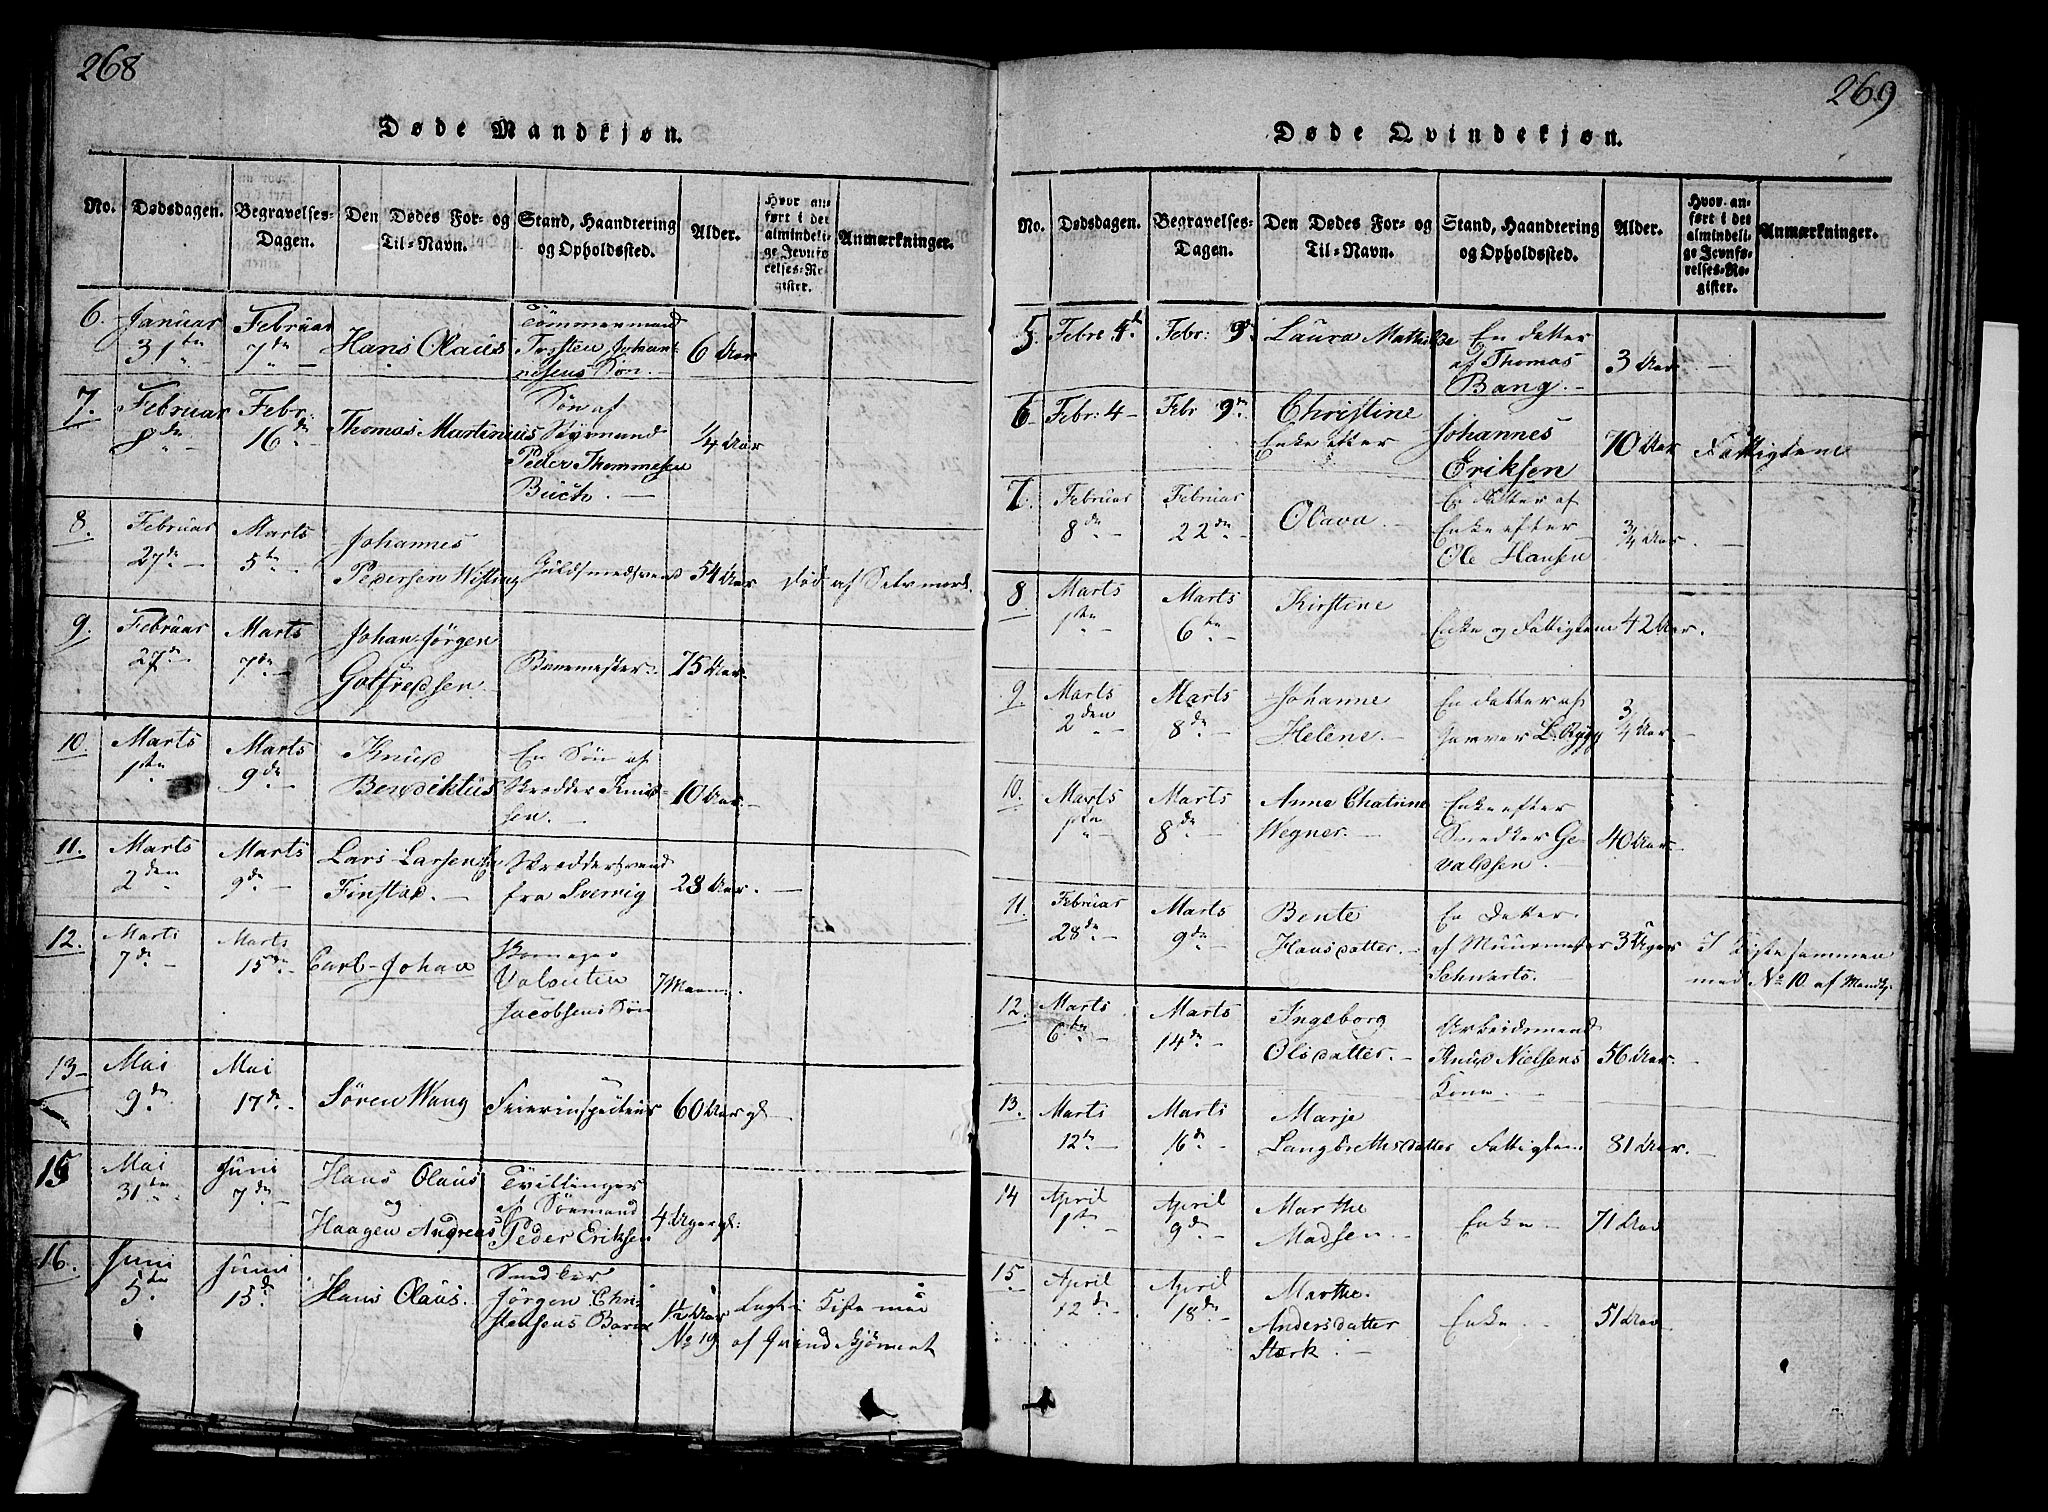 268
Døde Mandkjøn.
No. Dødsdagen. Begravelses-Dagen. Den Dødes For- og Til-Navn. Stand, Haandtering og Opholdssted. Alder. Hvor anført i det almindelige Jevnførelses-Register. Anmærkninger.
6. Januar Februar Tømmermand
31te 7de Hans Olaus Torsten Johan- 6 Aar
nesens Søn.
7. Februar Febr: Søn af
8de 16de Thomas Martinius Styrmand 1/4 Aar
Peder Thommesen
Buch.
8. Februar Marts Johannes
27de 5te Pedersen Guldsmedsvend 54 Aar død af Selvmord.
9. Februar Marts Johan Jørgen
27de 7de Gotfredsen Aar.
10. Marts Marts Knud En Søn af
1ste 9de Bendiktus Skrædder Knud- 10 Aar.
sen.
11. Marts Marts Lars Larsen Skræddersvend
2den 9de Finstad. fra Sverrig 28 Aar.
12. Marts Marts
7de 15de Carl-Johan Valentin 7 Maan:
Jacobsens Søn
13 Mai Mai
9de 17de Søren Wang 60 Aar gl.
15 Mai Juni Hans Olaus Tvillinger
31te 7de og af Sørmand 4 Uger gl:
Haagen Andreas Peder Eriksen
16. Juni Juni Snedker
5te 15de Hans Olaus. Jørgen Chri- 1½ Aar Lagt i Kiste med
stensens Barn No 19 af Qvindekjønnet
269
Døde Qvindekjøn.
No. Dødsdagen. Begravelses-Dagen. Den Dødes For- og Til-Navn. Stand, Haandtering og Opholdssted. Alder. Hvor anført i det almindelige Jevnførelses-Register. Anmærkninger.
5. Febr 4de Febr: 9de Laura Mathilde En datter
af Thomas 3 Aar
Bang.
6 Febr: 4 Febr 9de Christine Johannes
Enke efter Eriksen 70 Aar Fattiglem
7. Februar Februar Olava En Datter af
8de 22de Enke efter 3/4 Aar
Ole Hansen
8 Marts Marts Kirstine
1ste 6te Enke og Fattiglem 42 Aar.
9 Marts Marts Johanne En datter af
2den 8de Helene. 3/4 Aar.
10. Marts Marts Anne Chatrine Enke efter
1ste 8de Wegner. Snedker Ge- 40 Aar
valdsen.
11. Februar Marts Bente En Datter
28de 9de Hansdatter. af Muurmester 3 Uger I Kiste sammen
Schwarts. med No 10 af Mandkj.
12. Marts Marts Ingeborg Arbeidsmand
6te 14de Olsdatter. Knud Nielsens 56 Aar
Kone
13. Marts Marts Marje
12te 16de Langbrethsdatter Fattiglem 81 Aar.
14 April April Marthe
1ste 9de Madsen. Enke 71 Aar
15. April April Marthe
12de 18de Andersdatter Enke. 51 Aar
Stærk.